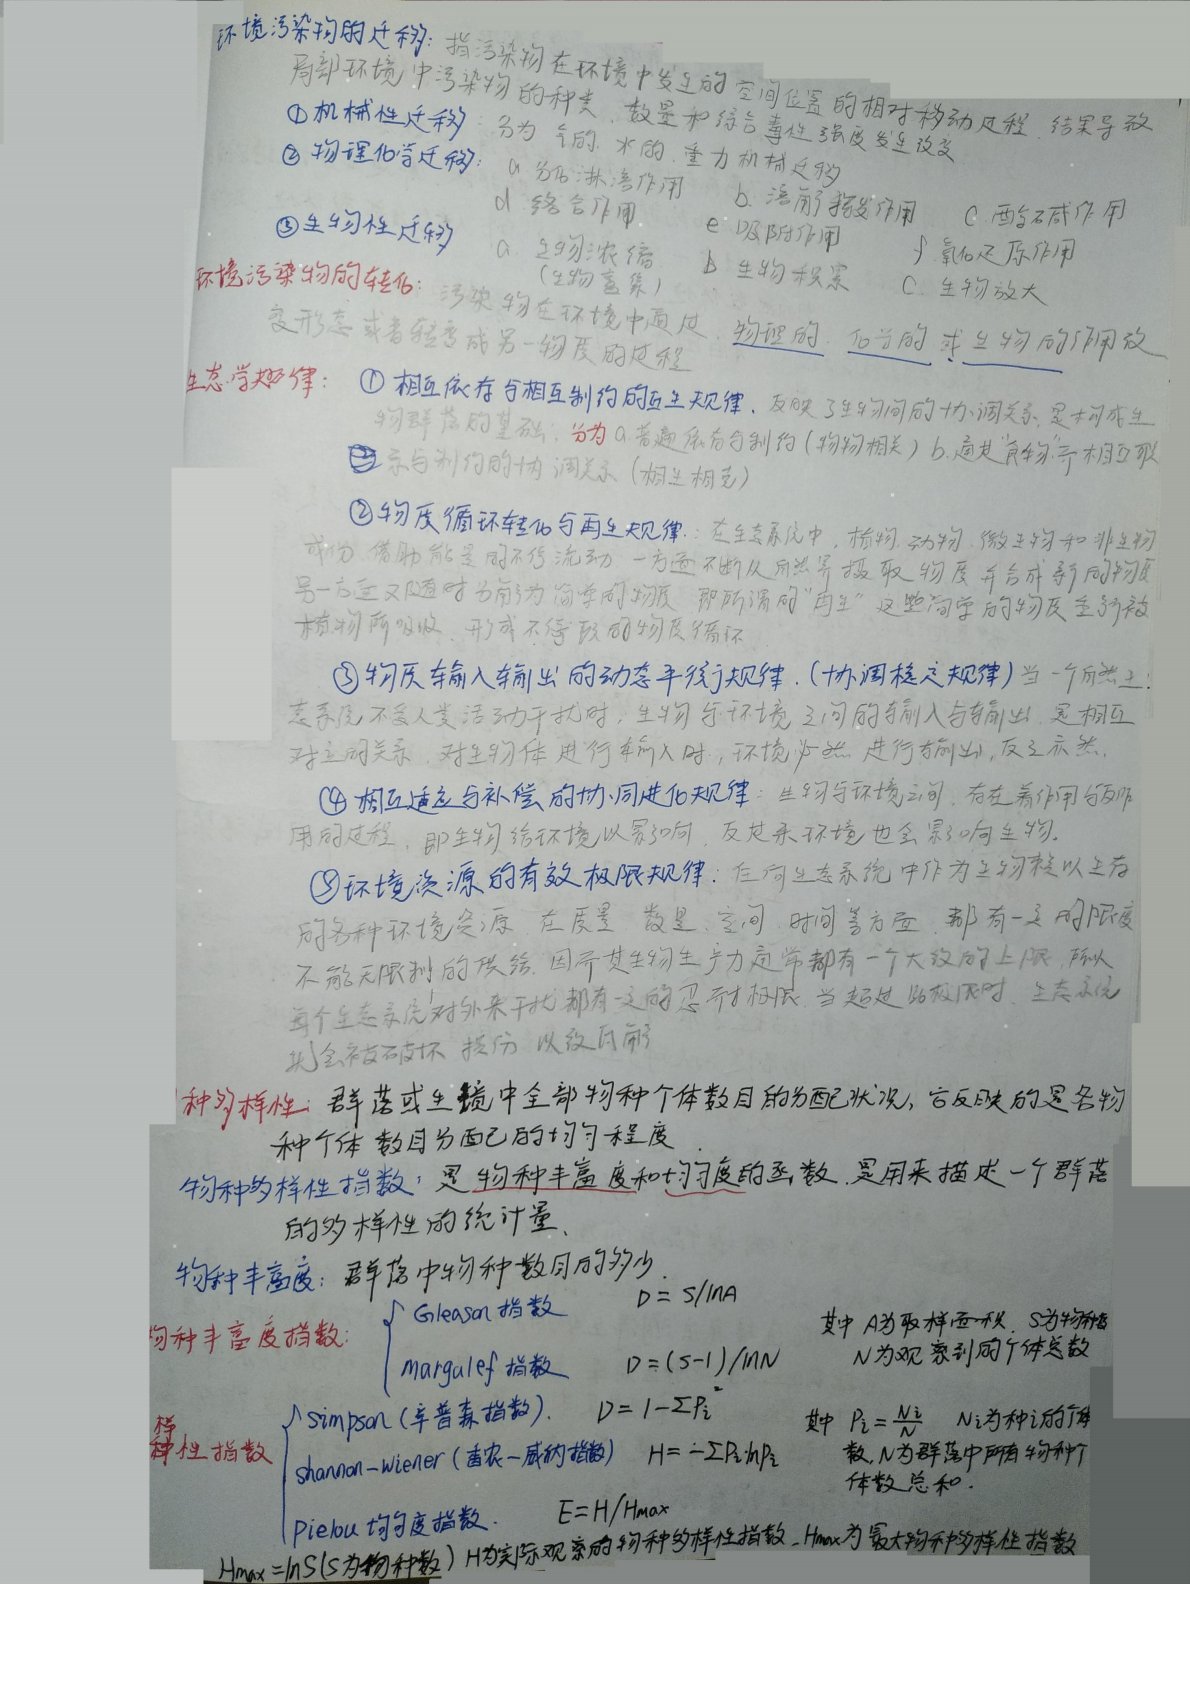 环境污染物的迁移：指污染物在环境中发生的空间位置的相对移动过程，结果导致
局部环境中污染物的种类、数量和综合毒性强度发生改变
①机械性迁移：分为 气的、水的、重力机械迁移
②物理化学迁移：a 淋溶作用 b. 溶解挥发作用 c. 酸碱作用
d 络合作用 e 吸附作用 f. 氧化还原作用
③生物性迁移 a. 生物浓缩 b 生物积累 c. 生物放大
(生物富集)
环境污染物的转化：污染物在环境中通过，物理的、化学的或生物的作用改
变形态或者转变成另一物质的过程
生态学规律：①相互依存与相互制约的互生规律，反映了生物间的协调关系，是构成生
物群落的基础，分为 a.普遍依存与制约(物物相关) b.通过"食物"而相互联
系与制约的协调关系(相生相克)
②物质循环转化与再生规律：在生态系统中，植物、动物、微生物和非生物
成份，借助能量的不停流动，一方面不断从自然界摄取物质并合成新的物质
另一方面又随时分解为简单的物质，即所谓的"再生"这些简单的物质重新被
植物所吸收，形成不停歇的物质循环
③物质输入输出的动态平衡规律.(协调稳定规律)当一个自然生
态系统不受人类活动干扰时，生物与环境之间的输入与输出，是相互
对立的关系，对生物体进行输入时，环境必然进行输出，反之亦然.
④相互适应与补偿的协同进化规律：生物与环境之间，存在着作用与反作
用的过程，即生物给环境以影响，反过来环境也会影响生物。
⑤环境资源的有效极限规律：任何生态系统中作为生物赖以生存
的各种环境资源，在质量、数量、空间、时间等方面，都有一定的限度
不能无限制的供给，因而其生物生产力通常都有一个大致的上限，所以
每个生态系统对外来干扰都有一定的忍耐极限，当超过此极限时，生态系统
就会被破坏 损伤 以致瓦解
种多样性：群落或生境中全部物种个体数目的分配状况，它反映的是各物
种个体数目分配的均匀程度
物种多样性指数：是物种丰富度和均匀度的函数，是用来描述一个群落
的多样性的统计量、
物种丰富度：群落中物种数目的多少.
物种丰富度指数： Gleason指数 D = S/lnA 其中 A为取样面积、S为物种数
margalef指数 D=(S-1)/lnN N为观察到的个体总数
样
种性指数 simpson(辛普森指数). D=1-ΣPi² 其中 Pi=Ni/N Ni为种i的个体
shannon-wiener(香农-威纳指数) H=-ΣPilnPi 数，N为群落中所有物种个
体数总和.
pielou 均匀度指数. E=H/Hmax
Hmax=lnS(S为物种数) H为实际观察的物种多样性指数，Hmax为最大物种多样性指数